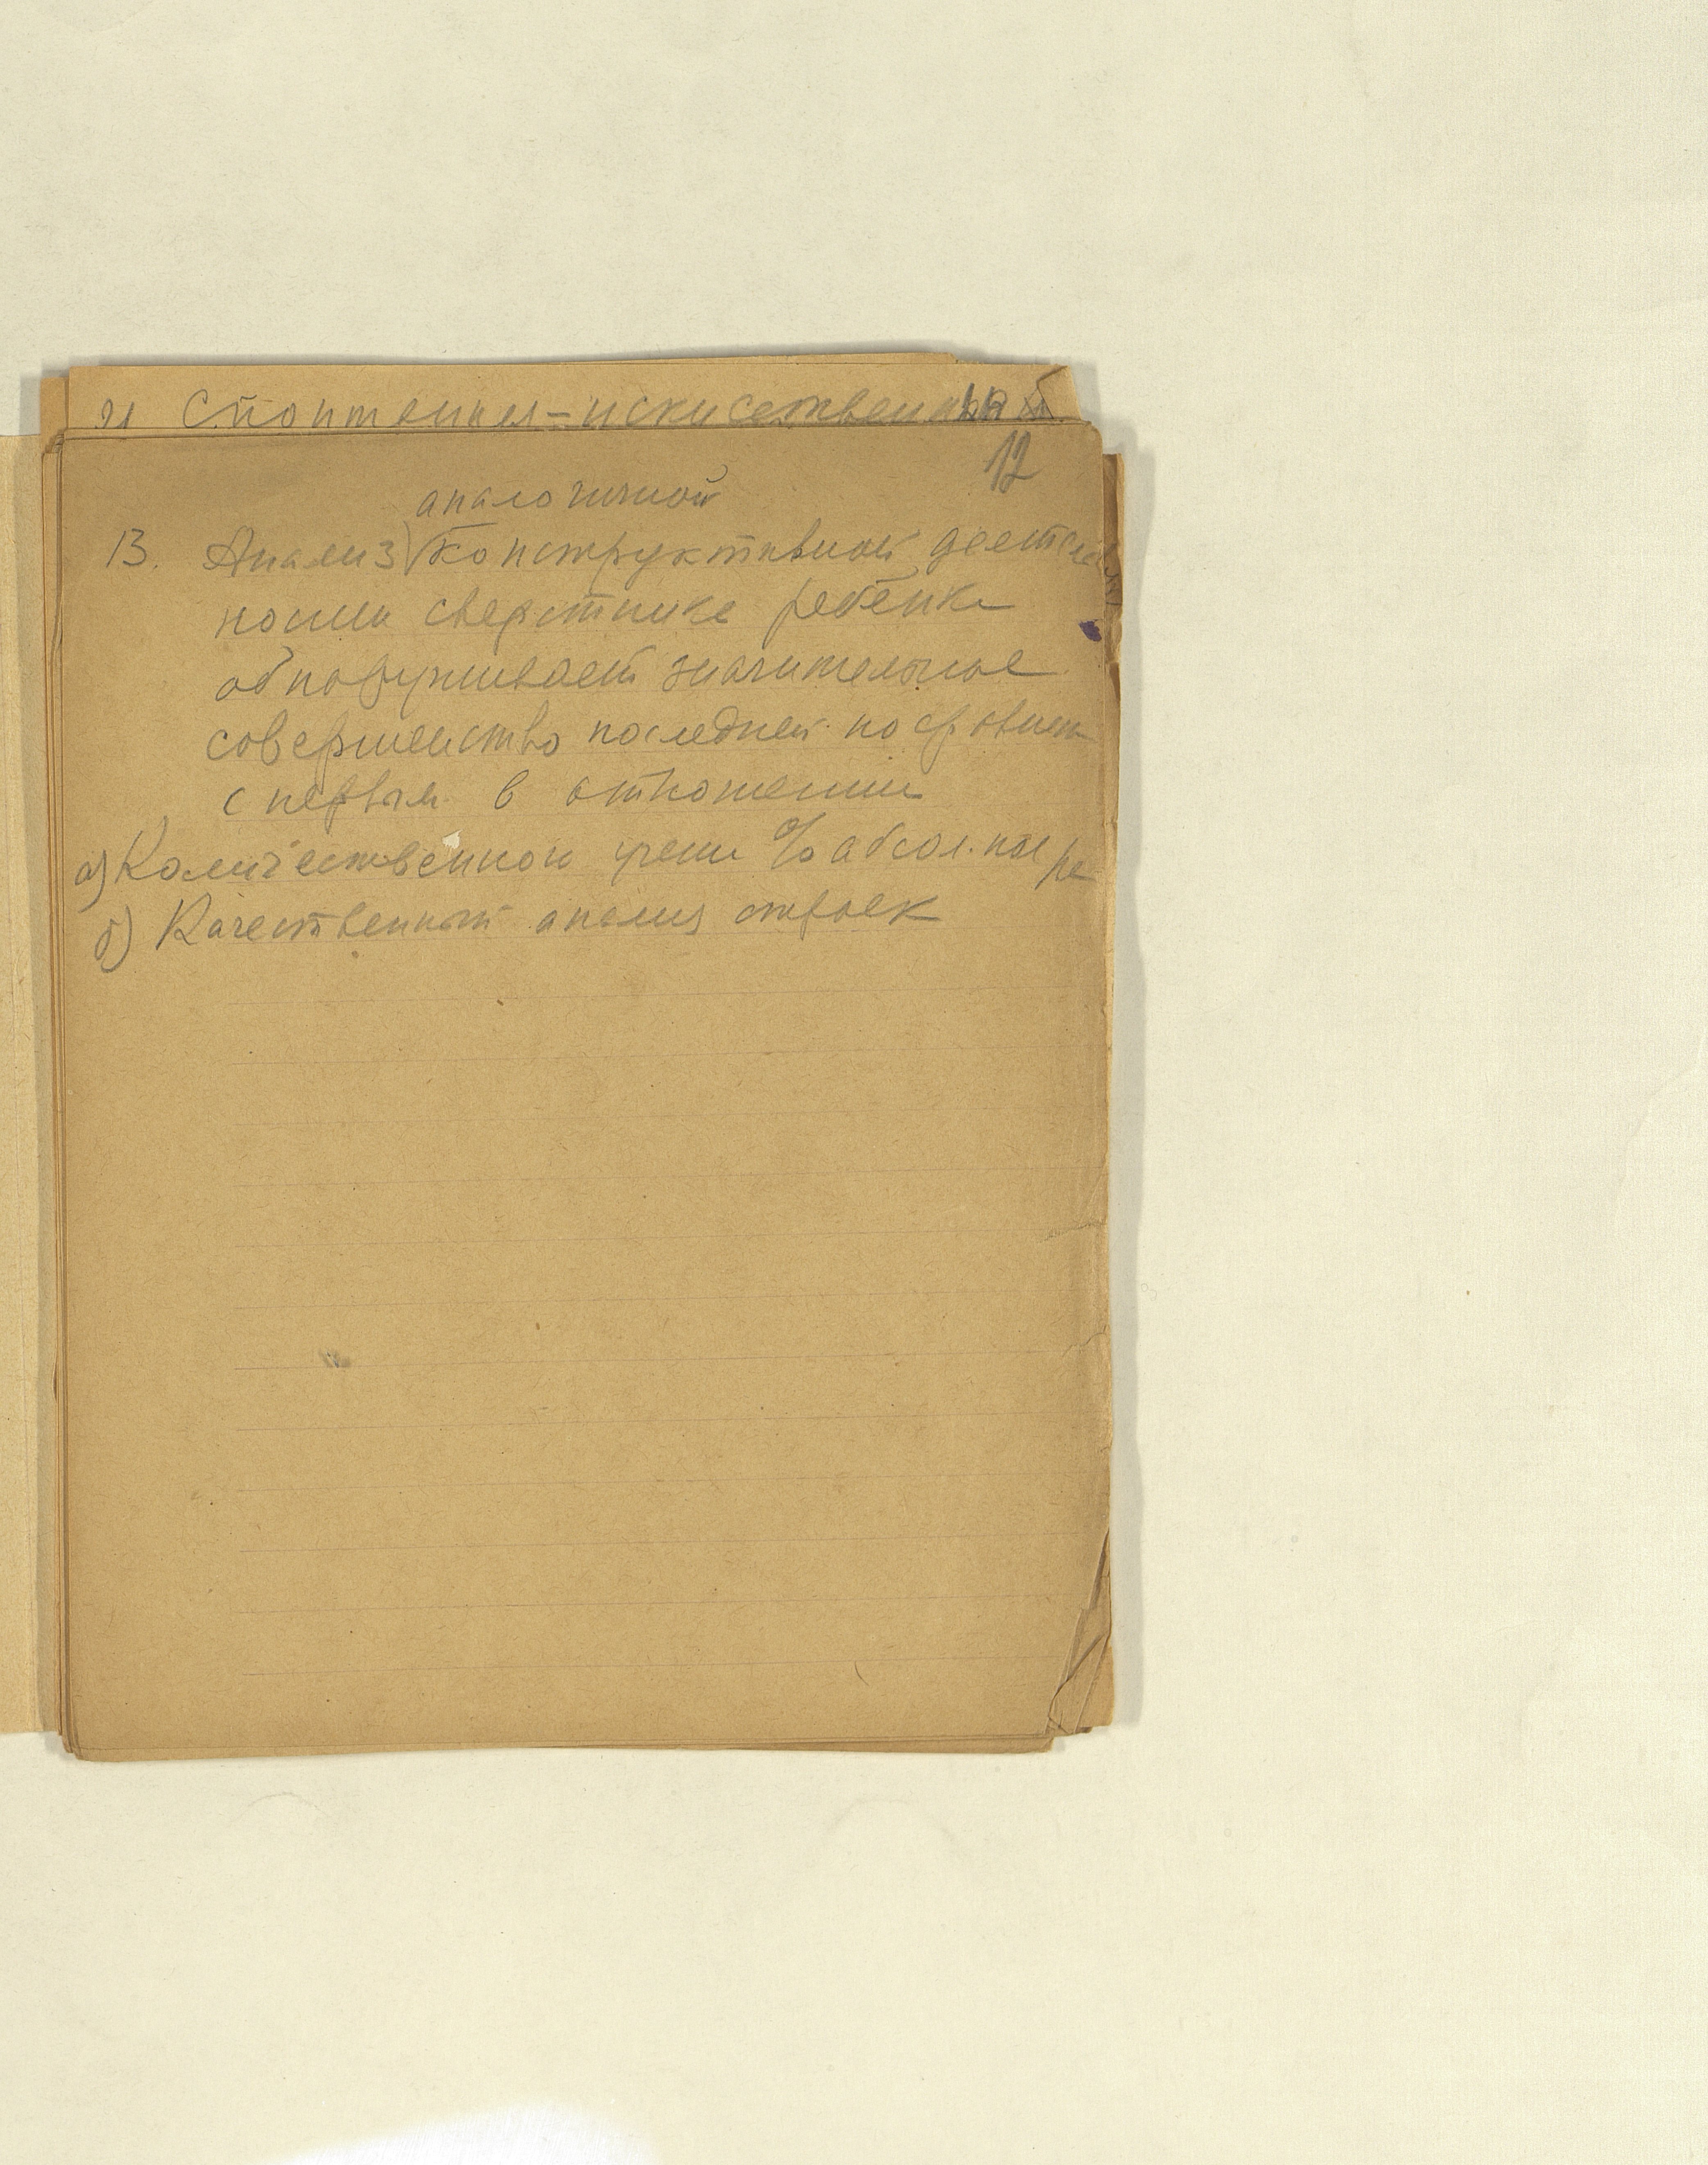 и спонтанная-искусственная
12
аналогичной
13. Анализ конструктивной деятель
ности сверстника ребёнка
обнаруживает значительное
совершенство последней по сравнен
с первым в отношении
а) Количественной %
б) Качественный анализ строек